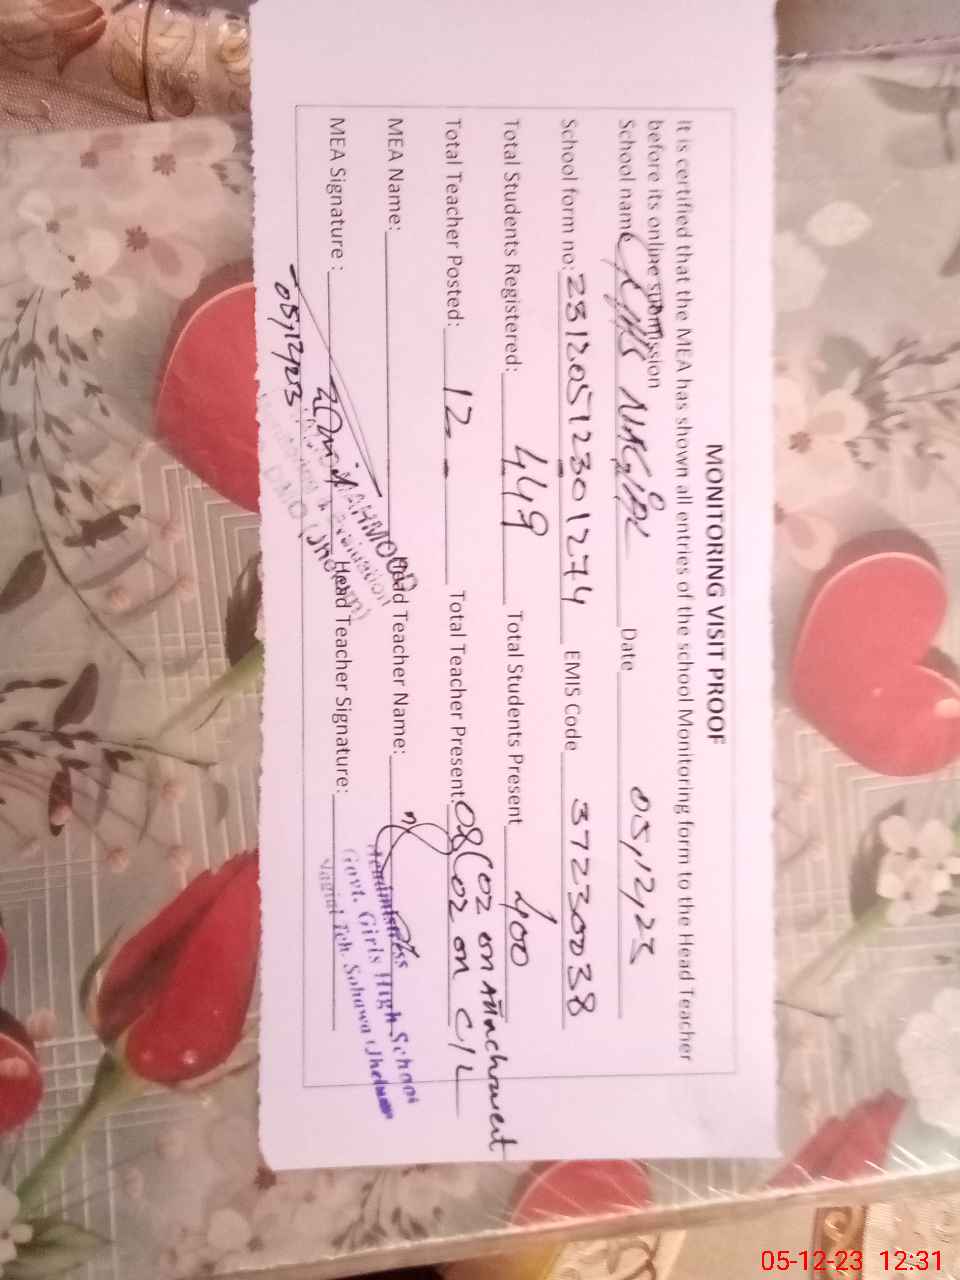 MONITORING VISIT PROOF
It is certified that the MEA has shown all entries of the school Monitoring form to the Head Teacher
before its online submission
School name GHS NAGIAL Date 05,12,23
School form no: 2812051230 1274 EMIS Code 37230038
Total Students Registered: 449 Total Students Present 400
Total Teacher Posted: 12 Total Teacher Present: 08 (02 on Attachment
02 on C/L
MEA Name: Head Teacher Name:
MEA Signature : Head Teacher Signature:
05,12,23
MAHMOOD
Evaluation
Headmistress
Govt. Girls High School
Nagial Teh. Sohawa (Jhelum)
05-12-23 12:31